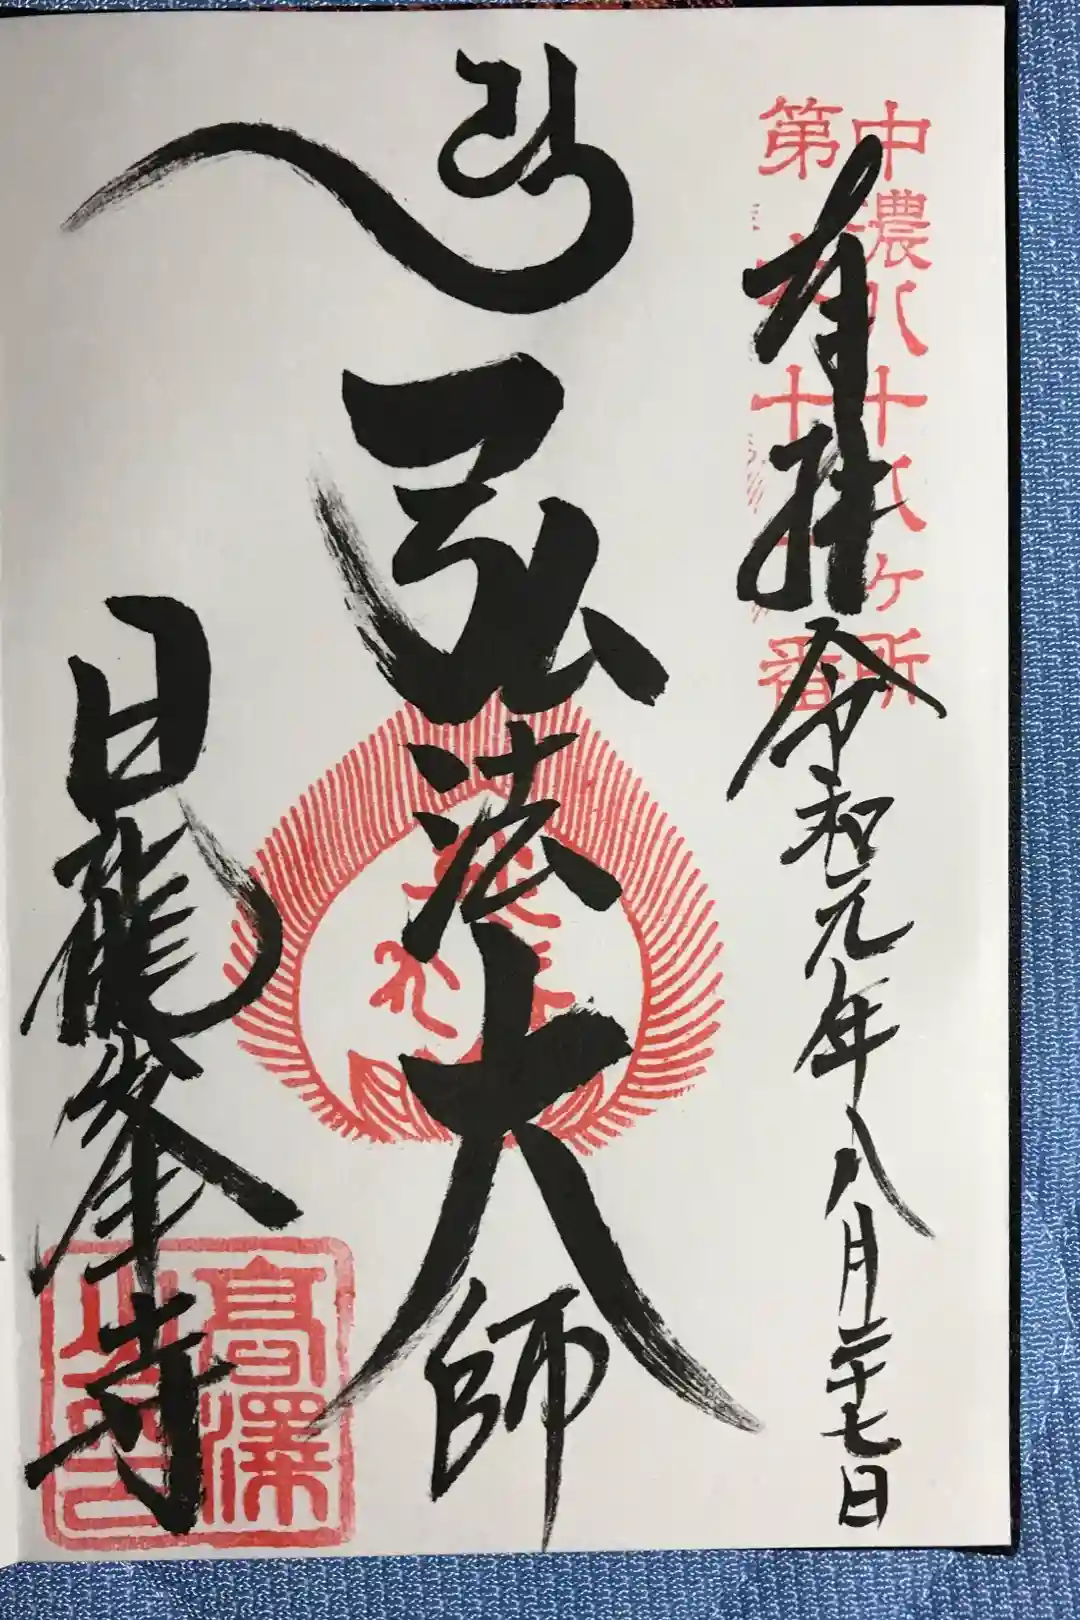 中濃八十八ヶ所
第
十
番
奉拝
令和元年八月二十七日
弘法大師
日龍峯寺
高澤